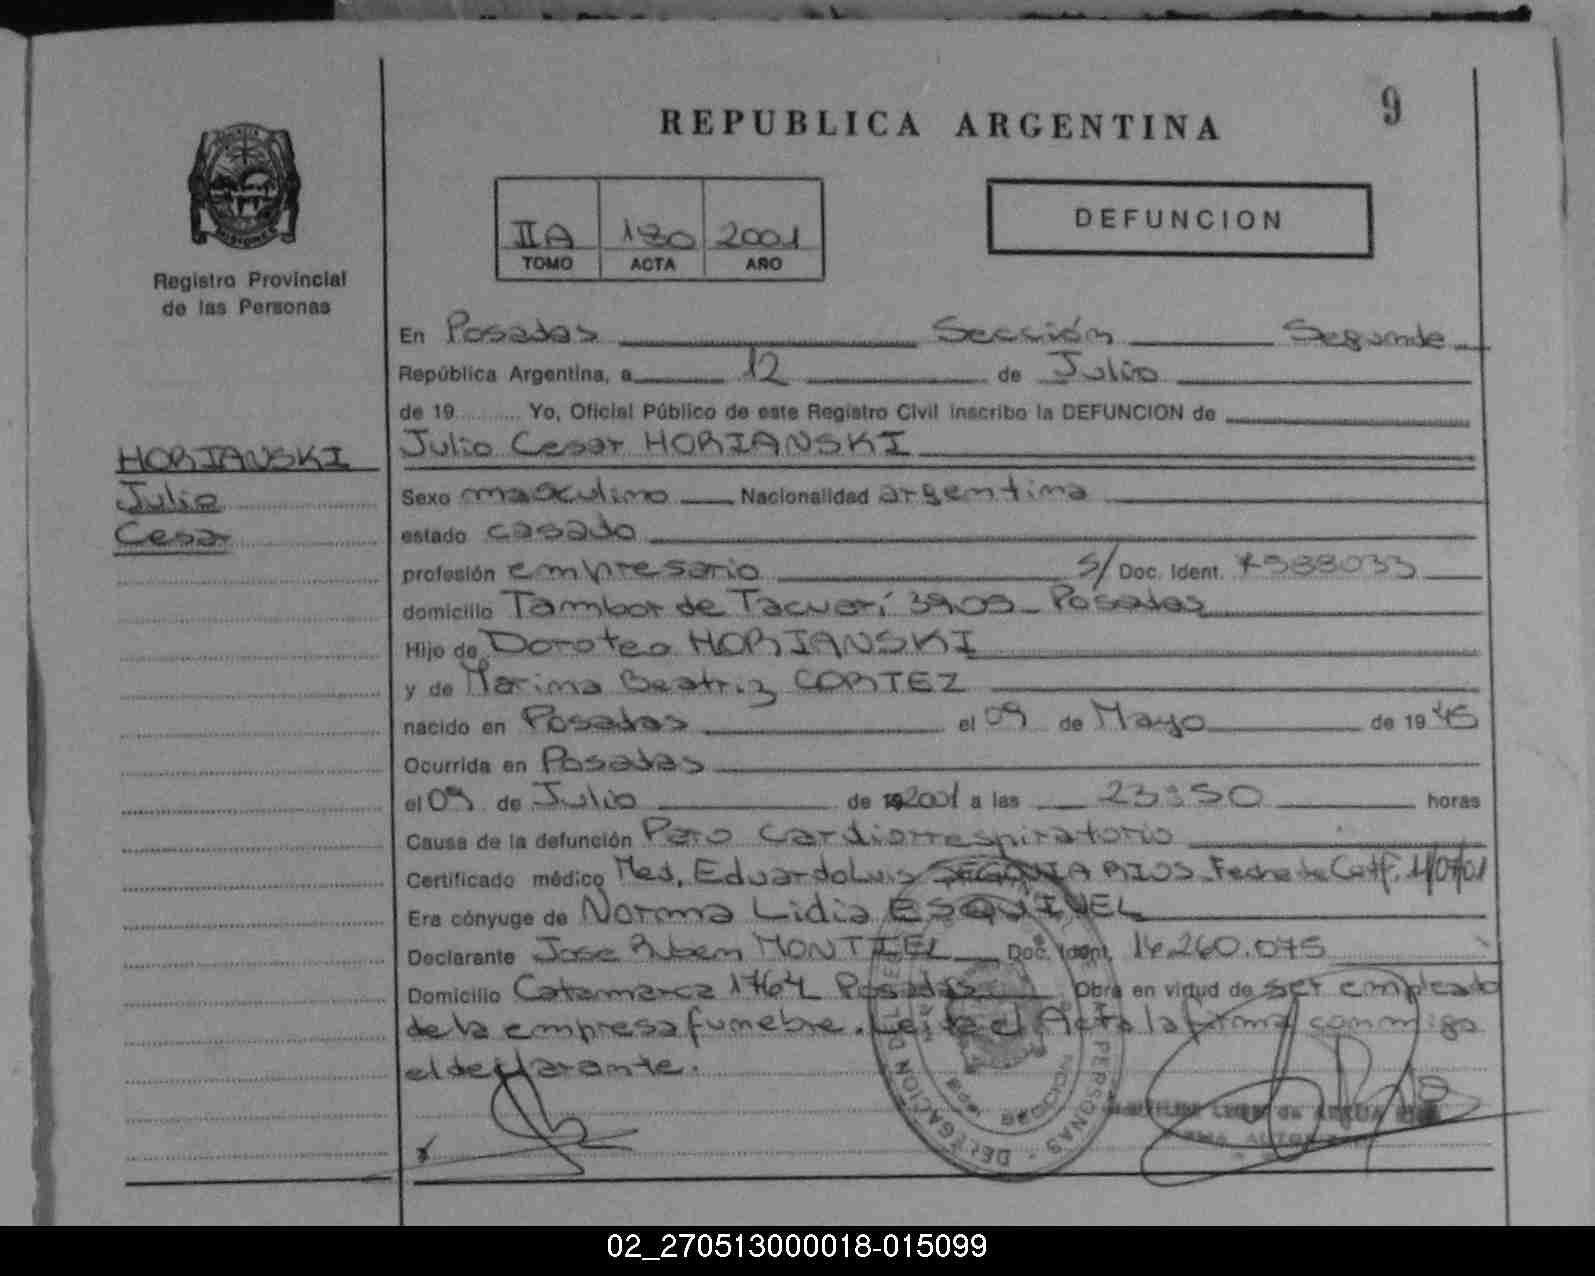 9
REPUBLICA ARGENTINA
IIA 130 2001
TOMO ACTA AÑO
DEFUNCION
MISIONES
Registro Provincial
de las Personas
En Posadas Sección Segunda
República Argentina, a 12 de Julio
de 19.......... Yo, Oficial Público de este Registro Civil inscribo la DEFUNCION de
HORIANSKI
Julio
Cesar
Julio Cesar HORIANSKI
Sexo masculino Nacionalidad argentina
estado casado
profesión empresario S/ Doc. Ident. 7588033
domicilio Tambor de Tacuarí 3909 - Posadas
Hijo de Doroteo HORIANSKI
y de Marina Beatriz CORTEZ
nacido en Posadas el 09 de Mayo de 19 45
Ocurrida en Posadas
el 09 de Julio de 2001 a las 23:50 horas
Causa de la defunción Paro cardiorrespiratorio
Certificado médico Med. Eduardo Luis SEGOVIA RIOS Fecha de Cetf. 11/07/01
Era cónyuge de Norma Lidia ESQUIVEL
Declarante Jose Ruben MONTIEL Doc. Ident. 14.260.075
Domicilio Catamarca 1764 Posadas Obra en virtud de ser empleado
de la empresa funebre. Leida el Acta la firma conmigo
el declarante.
DELEGACION
PERSONAS
02_270513000018-015099